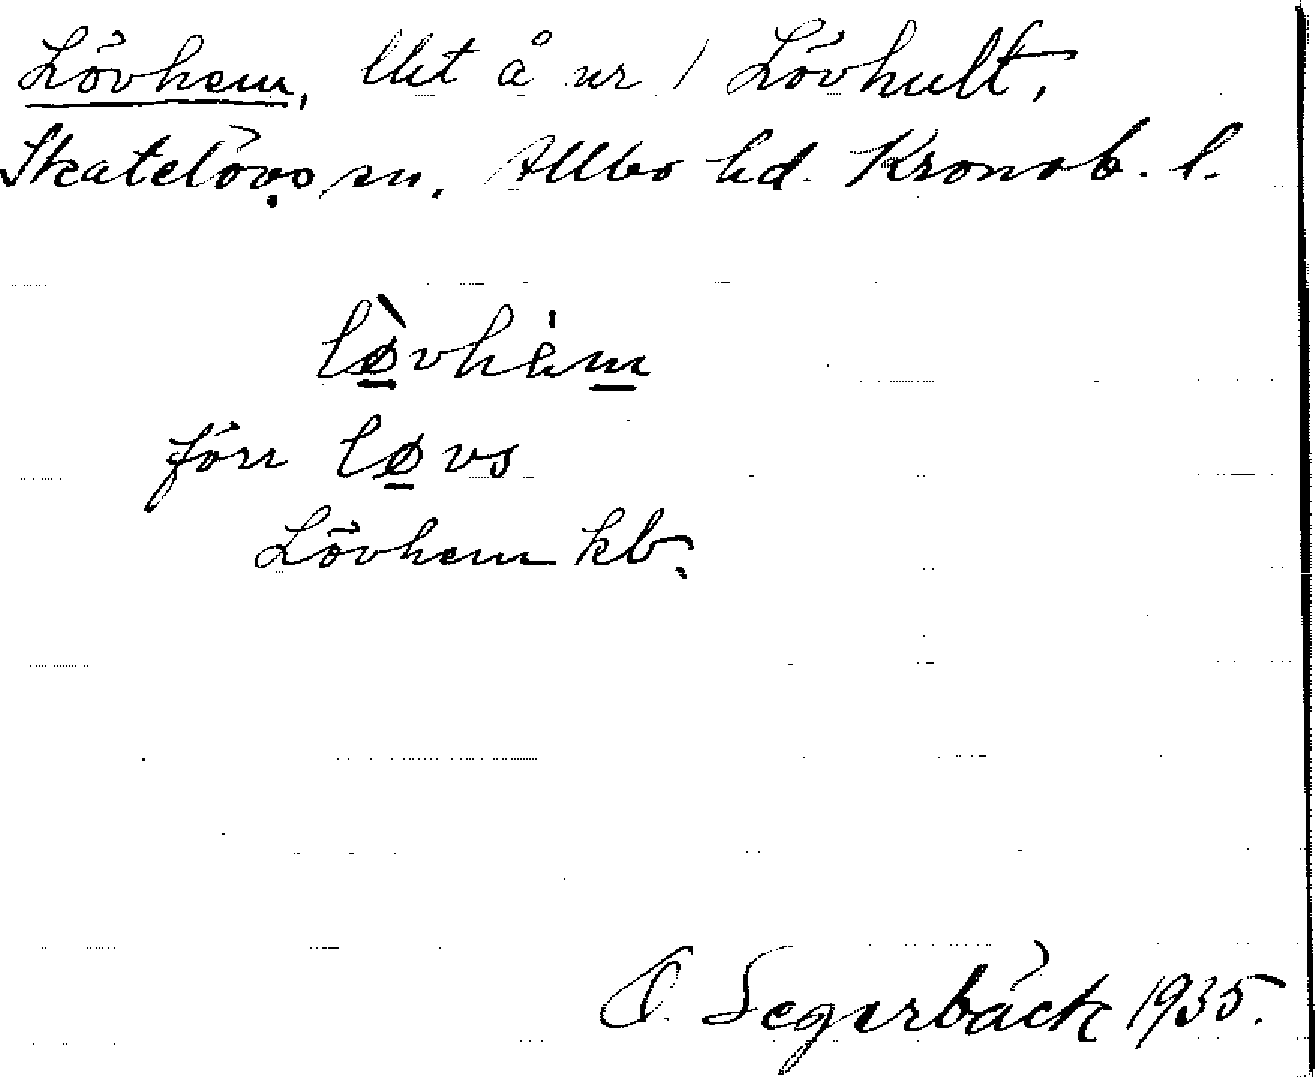 Lövhem, lht å nr 1 Lövhult,
Skatelövs sn. Allbo hd. Kronob. l.
lø̀vhèm
förr løvs
Lövhem kb.
O. Segerbäck 1935.